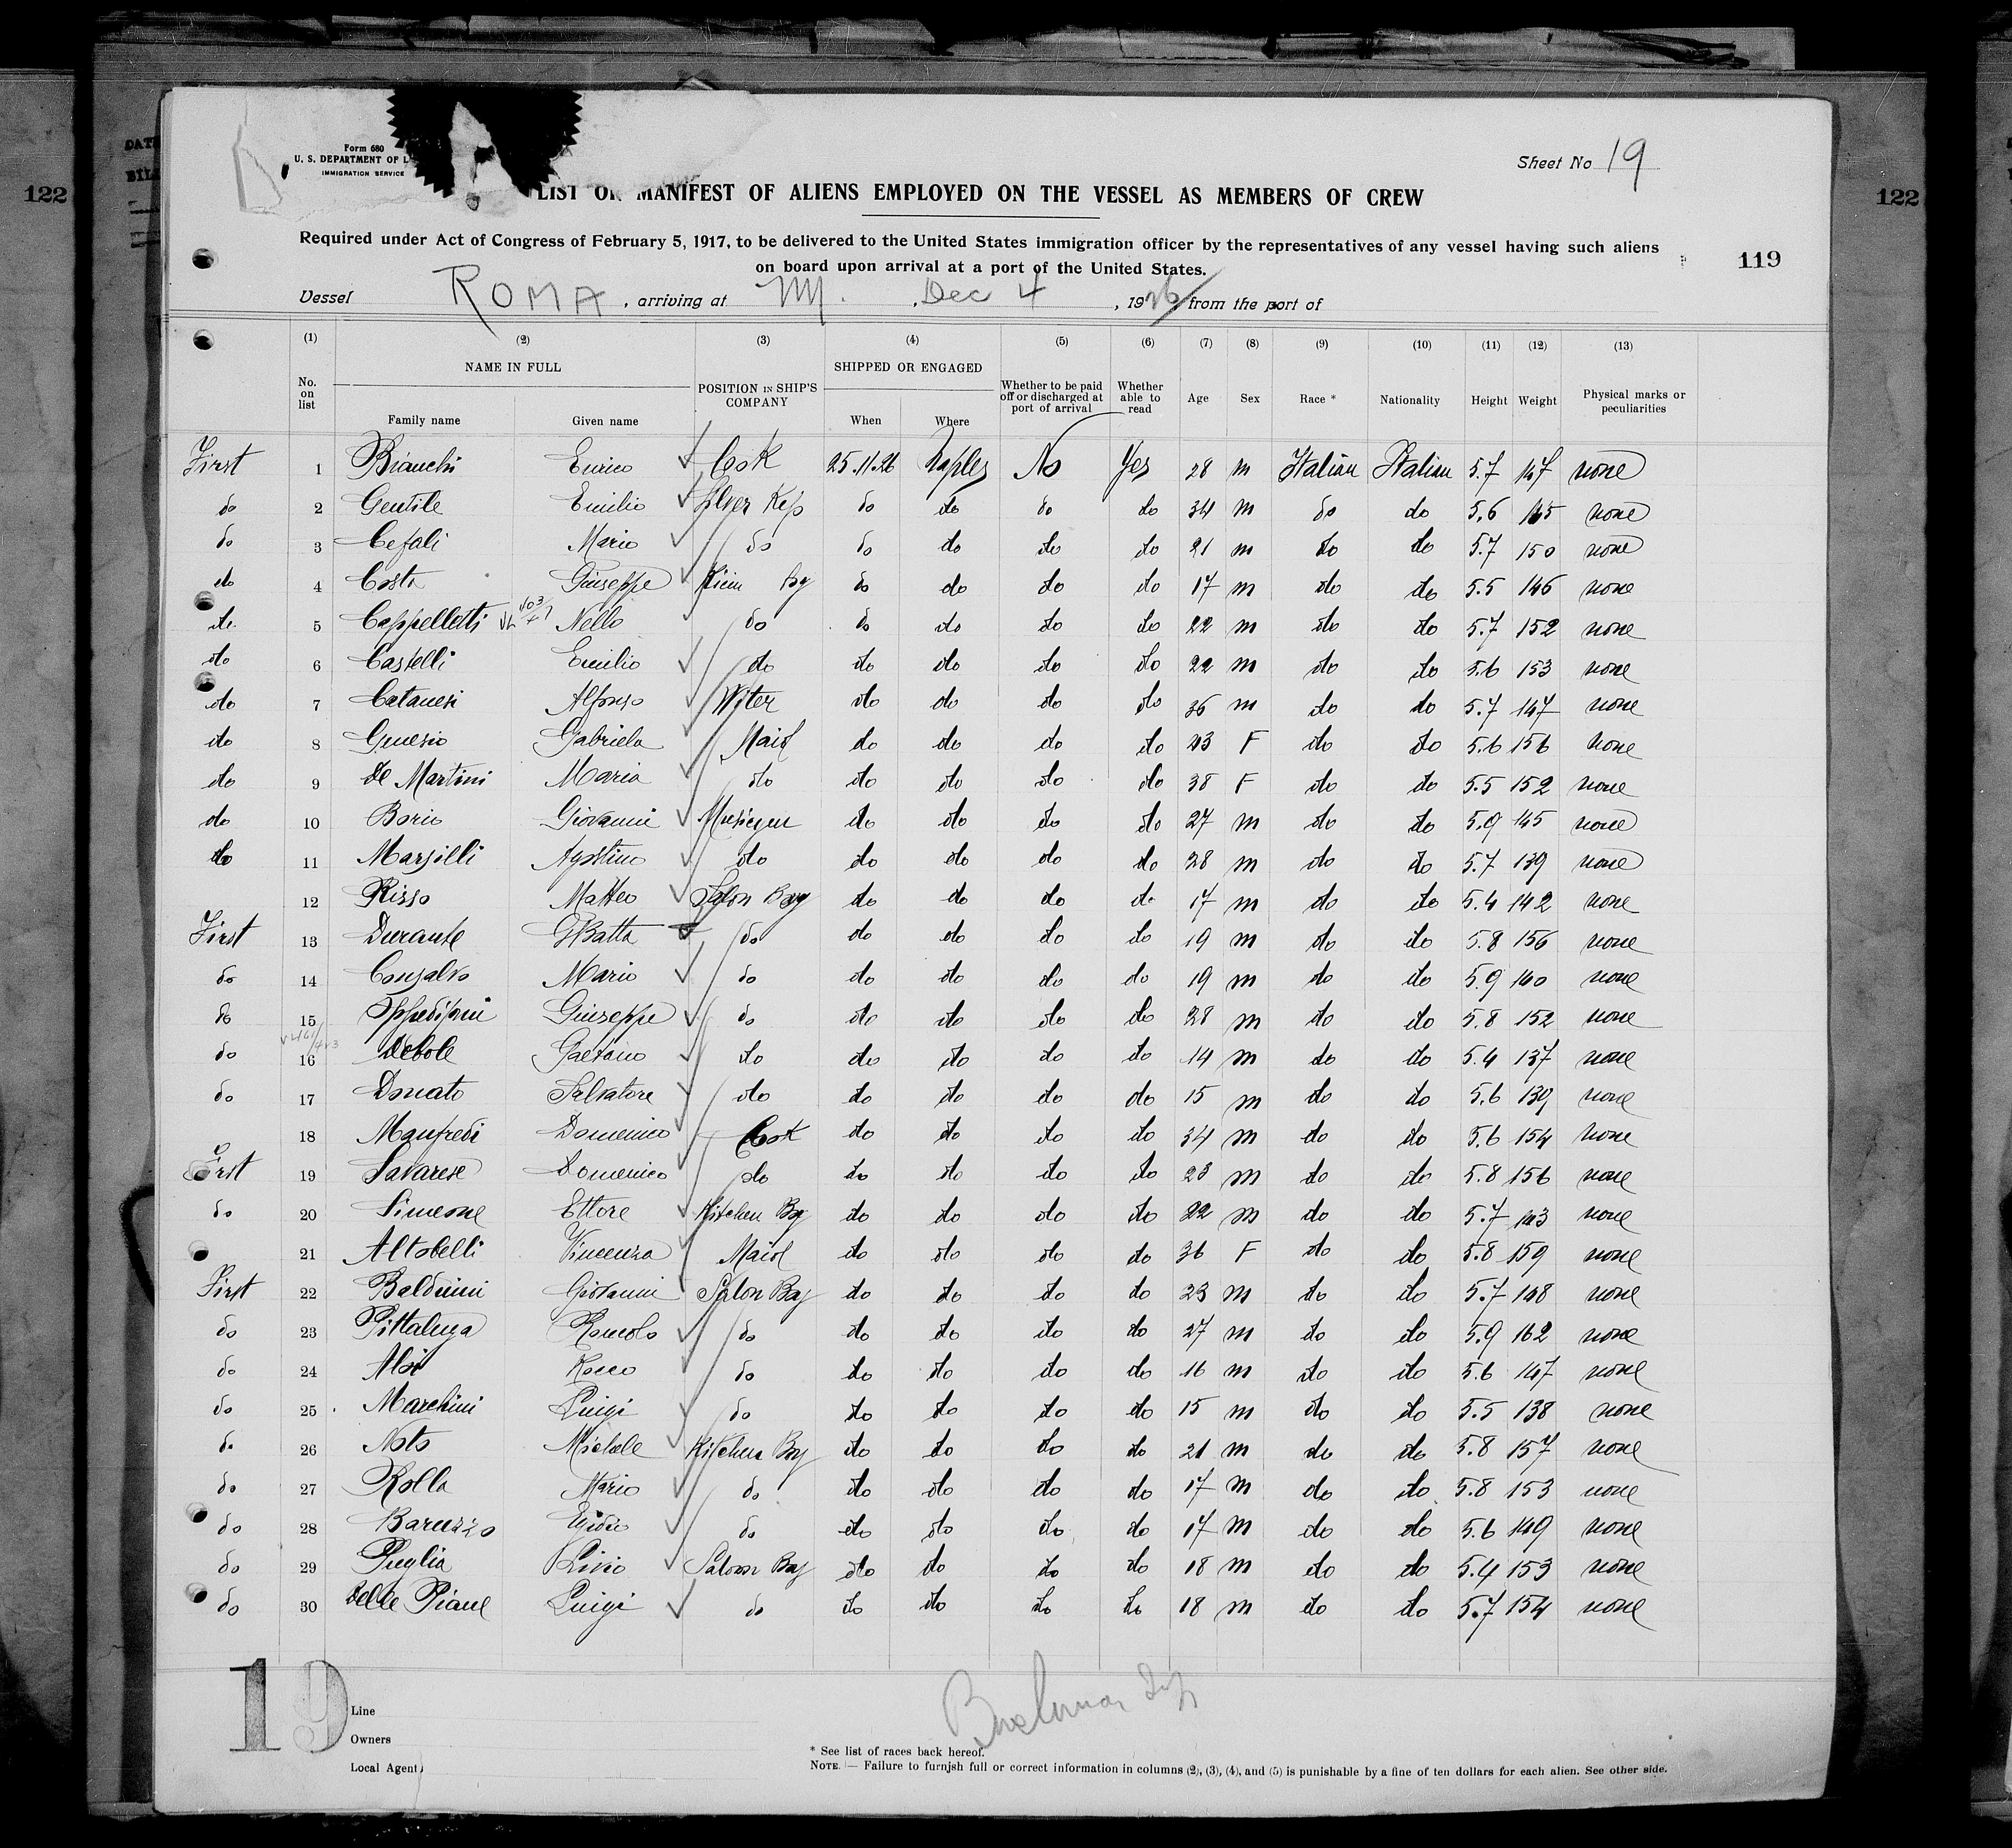 122
DAT
BIL
122
Form 680
U. S. DEPARTMENT OF L
IMMIGRATION SERVICE
Sheet No 19
LIST OR MANIFEST OF ALIENS EMPLOYED ON THE VESSEL AS MEMBERS OF CREW
Required under Act of Congress of February 5, 1917, to be delivered to the United States immigration officer by the representatives of any vessel having such aliens
on board upon arrival at a port of the United States.
119
Vessel ROMA, arriving at NY. , Dec 4 , 1926 from the port of
(1) (2) (3) (4) (5) (6) (7) (8) (9) (10) (11) (12) (13)
No. on list NAME IN FULL Family name Given name POSITION IN SHIP'S COMPANY SHIPPED OR ENGAGED When Where Whether to be paid off or discharged at port of arrival Whether able to read Age Sex Race * Nationality Height Weight Physical marks or peculiarities
First 1 Bianchi Enrico Cook 25.11.26 Naples No Yes 28 m Italian Italian 5.7 147 none
do 2 Gentile Emilio Silver Kep do do do do 34 m do do 5.6 145 none
do 3 Cefali Mario do do do do do 21 m do do 5.7 150 none
do 4 Costa Giuseppe do do do do 17 m do do 5.5 146 none
do 5 Cappelletti Nello do do do do do 22 m do do 5.7 152 none
do 6 Castelli Emilio do do do do do 22 m do do 5.6 153 none
do 7 Catanesi Alfonso Witer do do do do 36 m do do 5.7 147 none
do 8 Genesio Gabriela Maid do do do do 43 F do do 5.6 156 none
do 9 De Martini Maria do do do do do 38 F do do 5.5 152 none
do 10 Borio Giovanni do do do do 27 m do do 5.9 145 none
do 11 Marsilli Agostino do do do do do 28 m do do 5.7 139 none
12 Risso Matteo Salon Boy do do do do 17 m do do 5.4 142 none
First 13 Durante GBatta do do do do do 19 m do do 5.8 156 none
do 14 Consalvo Mario do do do do do 19 m do do 5.9 160 none
do 15 Giuseppe do do do do do 28 m do do 5.8 152 none
do 16 Debole Gaetano do do do do do 14 m do do 5.4 137 none
do 17 Donato Salvatore do do do do do 15 m do do 5.6 139 none
18 Manfredi Domenico Cook do do do do 34 m do do 5.6 154 none
First 19 Savarese Domenico do do do do do 23 m do do 5.8 156 none
do 20 Simeone Ettore Kitchen Boy do do do do 22 m do do 5.7 143 none
21 Altobelli Vincenza Maid do do do do 36 F do do 5.8 159 none
First 22 Balduini Giovanni Salon Boy do do do do 23 m do do 5.7 148 none
do 23 Pittaluga Romolo do do do do do 27 m do do 5.9 162 none
do 24 Aloi Rocco do do do do do 16 m do do 5.6 147 none
do 25 Marchini Luigi do do do do do 15 m do do 5.5 138 none
do 26 Noto Michele Kitchen Boy do do do do 21 m do do 5.8 157 none
do 27 Rolla Mario do do do do do 17 m do do 5.8 153 none
do 28 Baruzzo Egidio do do do do do 17 m do do 5.6 149 none
do 29 Puglia Livio Saloon Boy do do do do 18 m do do 5.4 153 none
do 30 Delle Piane Luigi do do do do do 18 m do do 5.7 154 none
19
Line
Owners
Local Agent
* See list of races back hereof.
NOTE. — Failure to furnish full or correct information in columns (2), (3), (4), and (5) is punishable by a fine of ten dollars for each alien. See other side.